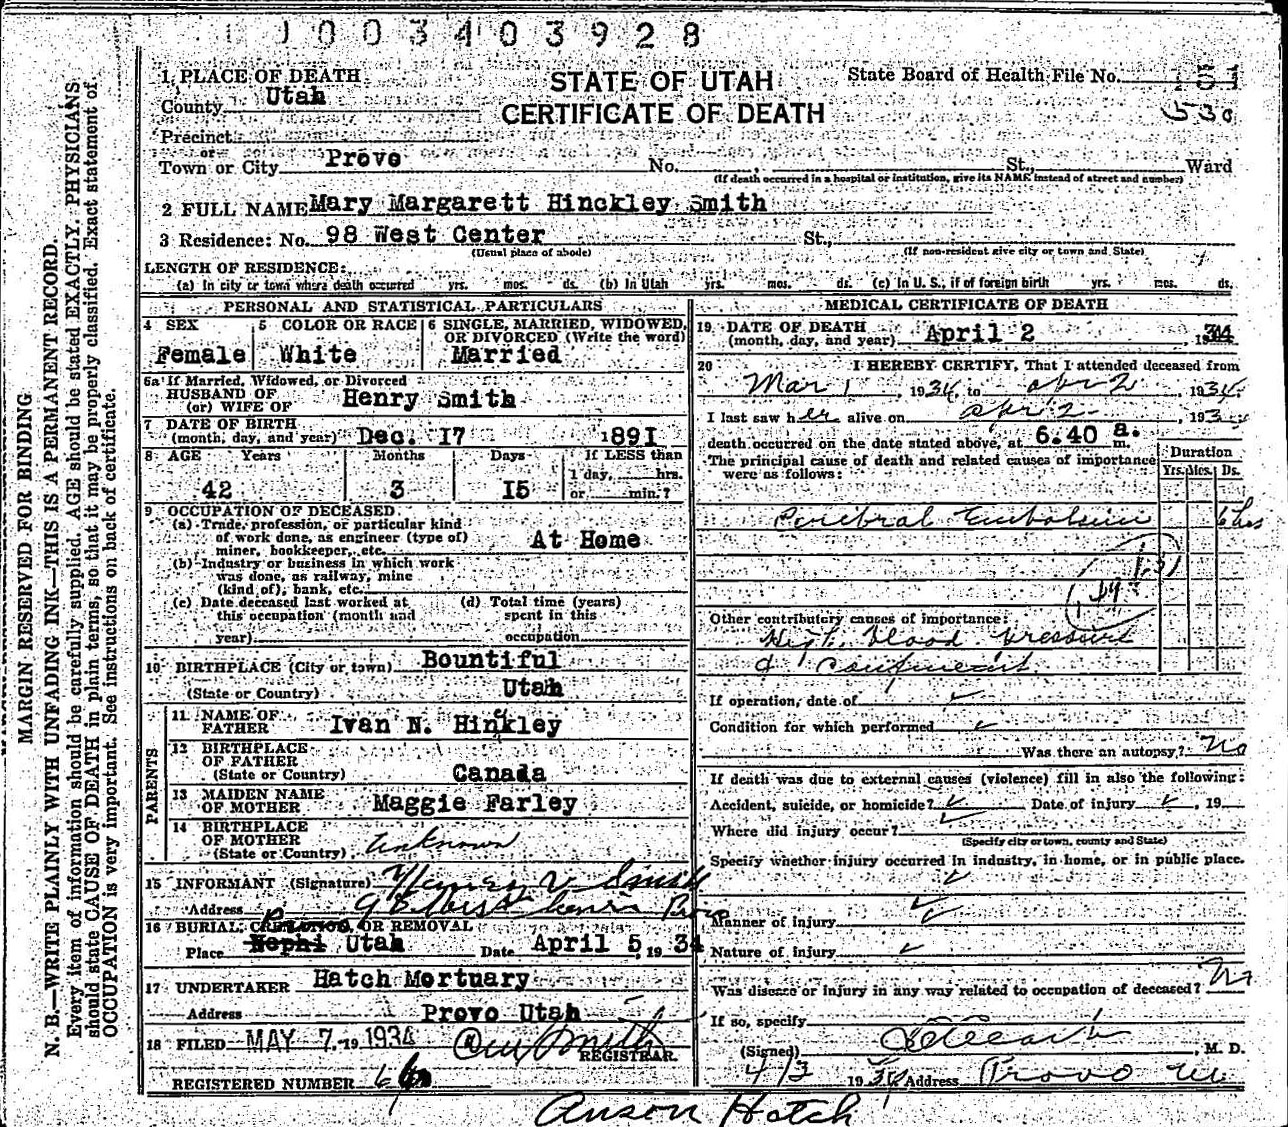 1003403928
1 PLACE OF DEATH
STATE OF UTAH
State Board of Health File No.
County Utah
CERTIFICATE OF DEATH
530
Precinct
or
Town or City Provo No. St., Ward
(If death occurred in a hospital or institution, give its NAME instead of street and number)
2 FULL NAME Mary Margarett Hinckley Smith
3 Residence: No. 98 West Center St.,
(Usual place of abode) (If non-resident give city or town and State)
LENGTH OF RESIDENCE:
(a) In city or town where death occurred yrs. mos. ds. (b) In Utah yrs. mos. ds. (c) In U. S., if of foreign birth yrs. mos. ds.
PERSONAL AND STATISTICAL PARTICULARS
4 SEX
Female
5 COLOR OR RACE
White
6 SINGLE, MARRIED, WIDOWED,
OR DIVORCED (Write the word)
Married
6a If Married, Widowed, or Divorced
HUSBAND OF
(or) WIFE OF Henry Smith
7 DATE OF BIRTH
(month, day, and year) Dec. 17 1891
8 AGE Years Months Days If LESS than
1 day, hrs.
42 3 15 or min.?
9 OCCUPATION OF DECEASED
(a) Trade, profession, or particular kind
of work done, as engineer (type of)
miner, bookkeeper, etc. At Home
(b) Industry or business in which work
was done, as railway, mine
(kind of), bank, etc.
(c) Date deceased last worked at
this occupation (month and
year)
(d) Total time (years)
spent in this
occupation
10 BIRTHPLACE (City or town) Bountiful
(State or Country) Utah
PARENTS
11 NAME OF
FATHER Ivan N. Hinkley
12 BIRTHPLACE
OF FATHER
(State or Country) Canada
13 MAIDEN NAME
OF MOTHER Maggie Farley
14 BIRTHPLACE
OF MOTHER
(State or Country) Unknown
15 INFORMANT (Signature) Henry V Smith
Address 98 West Center Provo
16 BURIAL, CREMATION, OR REMOVAL
Provo
Place Nephi Utah Date April 5, 1934
17 UNDERTAKER Hatch Mortuary
Address Provo Utah
18 FILED MAY 7. 19 1934
REGISTRAR.
REGISTERED NUMBER
MEDICAL CERTIFICATE OF DEATH
19 DATE OF DEATH
(month, day, and year) April 2, 1934
20 I HEREBY CERTIFY, That I attended deceased from
Mar 1, 1934, to Apr 2, 1934.
I last saw her alive on Apr 2, 193
death occurred on the date stated above, at 6.40 a. m.
The principal cause of death and related causes of importance
were as follows:
Duration
Yrs. Mos. Ds.
Cerebral Embolism 6 hrs
Other contributory causes of importance:
High blood pressure
& confinement
If operation, date of
Condition for which performed
Was there an autopsy? No
If death was due to external causes (violence) fill in also the following:
Accident, suicide, or homicide? Date of injury , 19
Where did injury occur?
(Specify city or town, county and State)
Specify whether injury occurred in industry, in home, or in public place.
Manner of injury
Nature of injury
Was disease or injury in any way related to occupation of deceased? No
If so, specify
(Signed) , M. D.
4/3 1934 Address Provo Ut
Anson Hatch
MARGIN RESERVED FOR BINDING
N. B.—WRITE PLAINLY WITH UNFADING INK—THIS IS A PERMANENT RECORD.
Every item of information should be carefully supplied. AGE should be stated EXACTLY. PHYSICIANS
should state CAUSE OF DEATH in plain terms, so that it may be properly classified. Exact statement of
OCCUPATION is very important. See instructions on back of certificate.